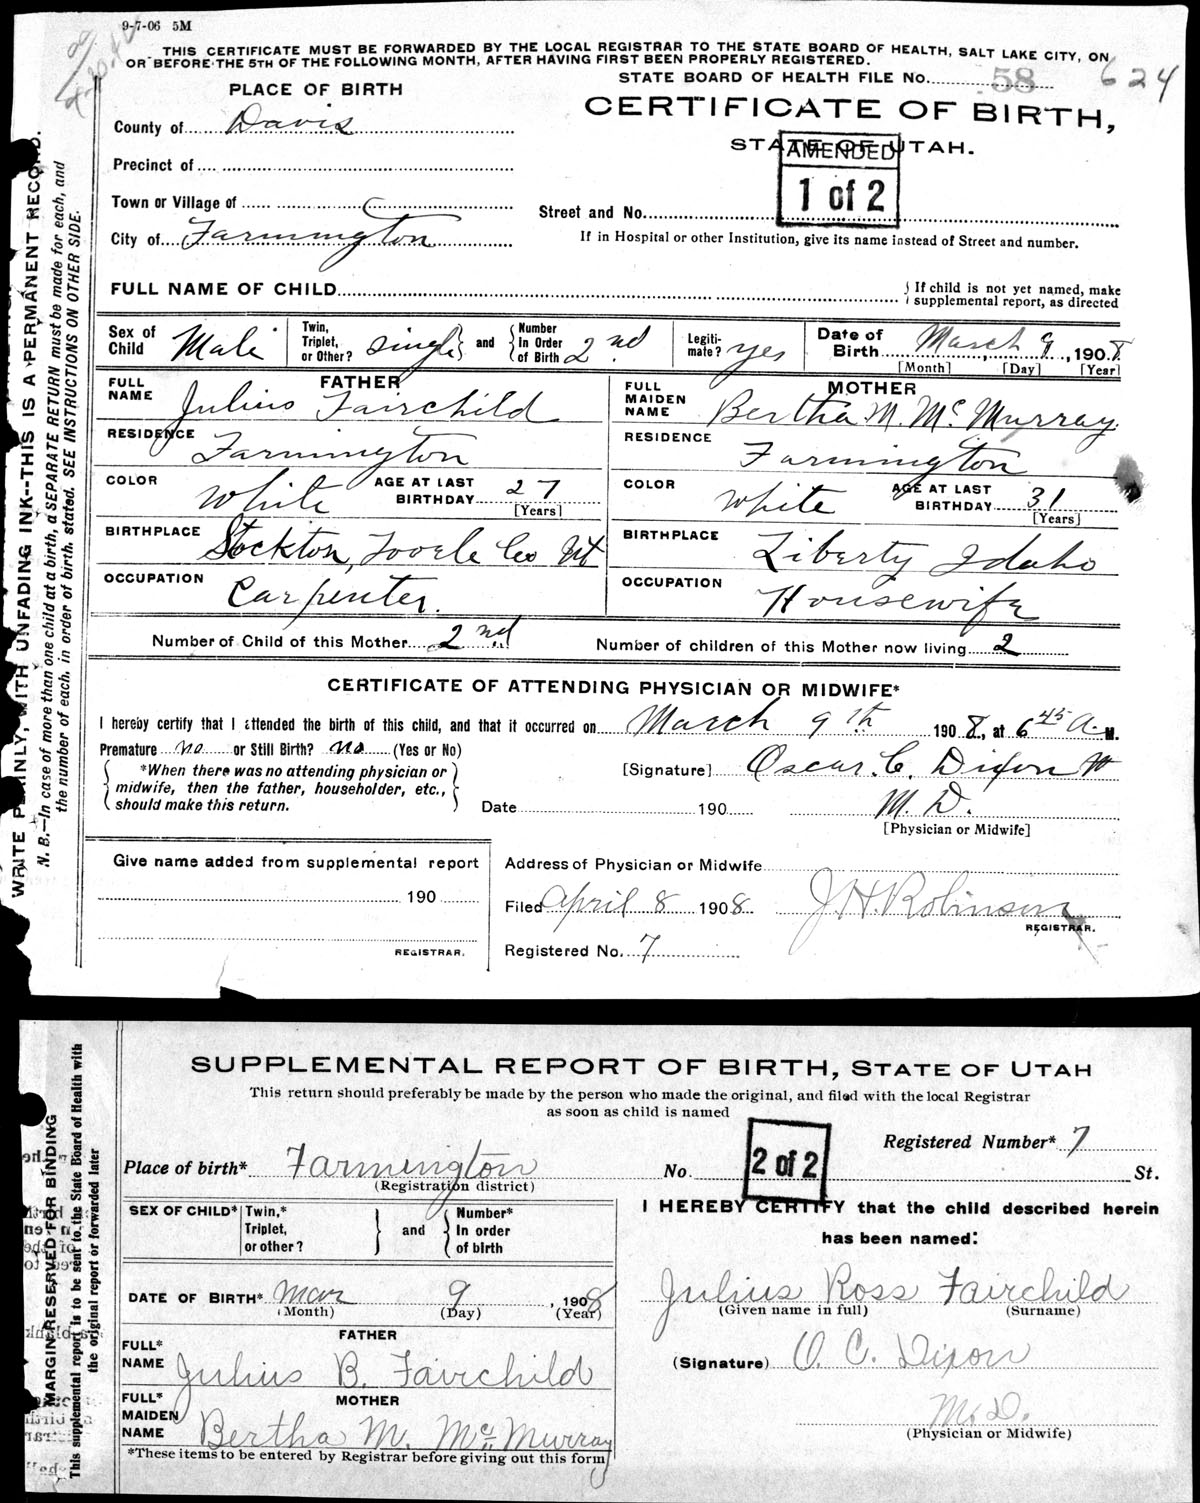 9-7-06 5M
THIS CERTIFICATE MUST BE FORWARDED BY THE LOCAL REGISTRAR TO THE STATE BOARD OF HEALTH, SALT LAKE CITY, ON
OR BEFORE THE 5TH OF THE FOLLOWING MONTH, AFTER HAVING FIRST BEEN PROPERLY REGISTERED.
STATE BOARD OF HEALTH FILE No. 58 624
PLACE OF BIRTH
CERTIFICATE OF BIRTH,
STATE OF UTAH.
AMENDED
1 of 2
County of Davis
Precinct of
Town or Village of
City of Farmington
Street and No.
If in Hospital or other Institution, give its name instead of Street and number.
FULL NAME OF CHILD
If child is not yet named, make
supplemental report, as directed
Sex of Child Male
Twin, Triplet, or Other? single and Number In Order of Birth 2nd
Legiti-mate? yes
Date of Birth March 9, 1908
[Month] [Day] [Year]
FATHER
FULL NAME Julius Fairchild
RESIDENCE Farmington
COLOR White AGE AT LAST BIRTHDAY 27
[Years]
BIRTHPLACE Stockton, Tooele Co Ut
OCCUPATION Carpenter.
MOTHER
FULL MAIDEN NAME Bertha M. McMurray.
RESIDENCE Farmington
COLOR White AGE AT LAST BIRTHDAY 31
[Years]
BIRTHPLACE Liberty Idaho
OCCUPATION Housewife
Number of Child of this Mother 2nd Number of children of this Mother now living 2
CERTIFICATE OF ATTENDING PHYSICIAN OR MIDWIFE*
I hereby certify that I attended the birth of this child, and that it occurred on March 9th 1908, at 6 45 A.M.
Premature no or Still Birth? no (Yes or No)
*When there was no attending physician or
midwife, then the father, householder, etc.,
should make this return.
[Signature] Oscar C. Dixon
Date 190 M.D.
[Physician or Midwife]
Give name added from supplemental report
190
REGISTRAR.
Address of Physician or Midwife
Filed April 8 1908 J.H. Robinson
REGISTRAR.
Registered No. 7
WRITE PLAINLY, WITH UNFADING INK--THIS IS A PERMANENT RECORD.
N. B.--In case of more than one child at a birth, a SEPARATE RETURN must be made for each, and
the number of each, in order of birth, stated. SEE INSTRUCTIONS ON OTHER SIDE.
SUPPLEMENTAL REPORT OF BIRTH, STATE OF UTAH
This return should preferably be made by the person who made the original, and filed with the local Registrar
as soon as child is named
Registered Number* 7
Place of birth* Farmington No. St.
(Registration district)
2 of 2
SEX OF CHILD* Twin,* Triplet, or other? and Number* In order of birth
DATE OF BIRTH* Mar 9, 1908
(Month) (Day) (Year)
FATHER
FULL* NAME Julius B. Fairchild
MOTHER
FULL* MAIDEN NAME Bertha M. McMurray
*These items to be entered by Registrar before giving out this form
I HEREBY CERTIFY that the child described herein
has been named:
Julius Ross Fairchild
(Given name in full) (Surname)
(Signature) O. C. Dixon
M.D.
(Physician or Midwife)
MARGIN RESERVED FOR BINDING
This supplemental report is to be sent to the State Board of Health with
the original report or forwarded later